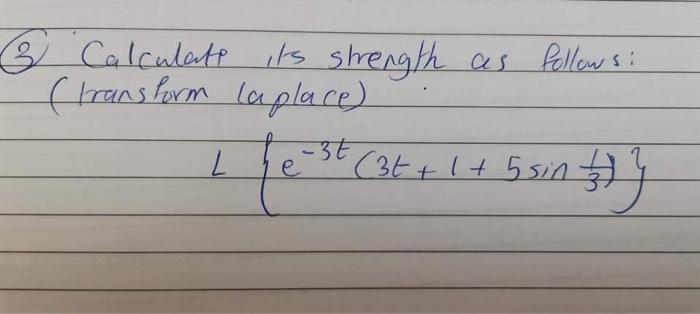 ③ Calculate its strength as follows:
(transform laplace)
L {e^{-3t} (3t + 1 + 5 sin \frac{1}{3})}